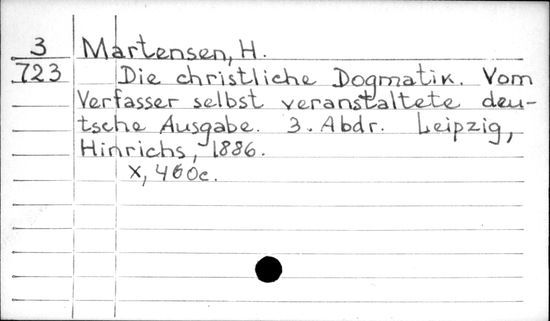 3 Martensen, H.
723 Die christliche Dogmatik. Vom
Verfasser selbst veranstaltete deu-
tsche Ausgabe. 3. Abdr. Leipzig,
Hinrichs, 1886.
X, 460c.